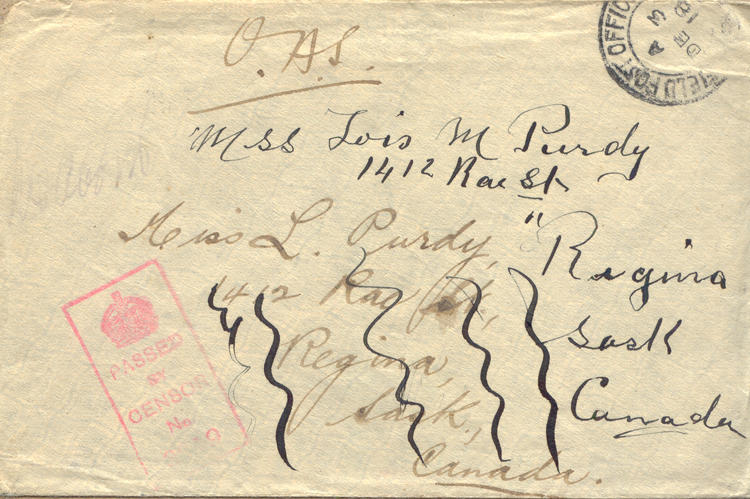 O.A.S.
FIELD POST OFFICE
A
3
DE
18
Miss Lois M Purdy
1412 Rae St
"
Regina
Sask
Canada
Miss L. Purdy,
1412 Rae St,
Regina,
Sask.,
Canada.
PASSED
BY
CENSOR
No